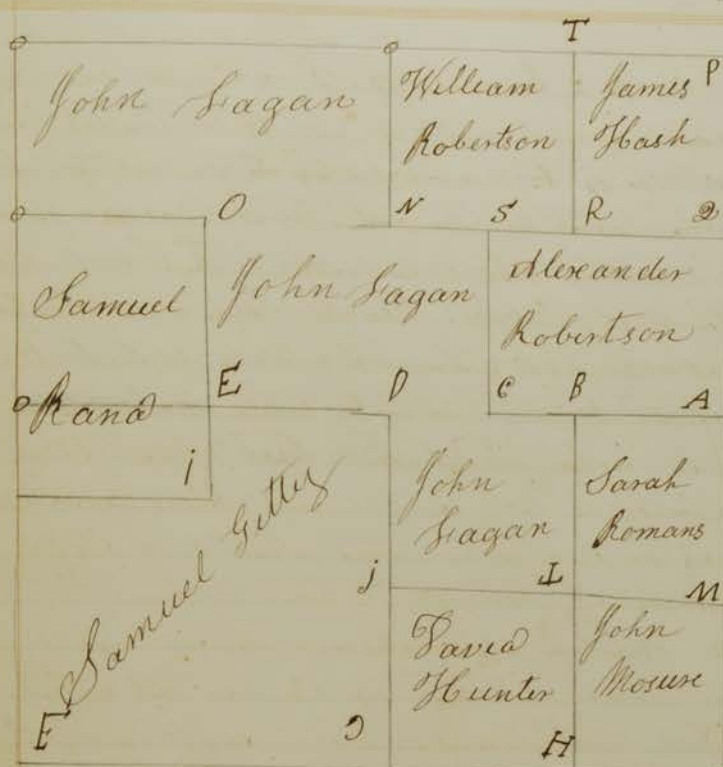 T
John Fagan
William
Robertson
James P
Hash
O
N S
R Q
Samuel
Rand
John Fagan
Alexander
Robertson
E D
C B A
i
Samuel Gettey
John
Fagan
Sarah
Romans
J
I
M
David
Hunter
John
Mosure
F
H